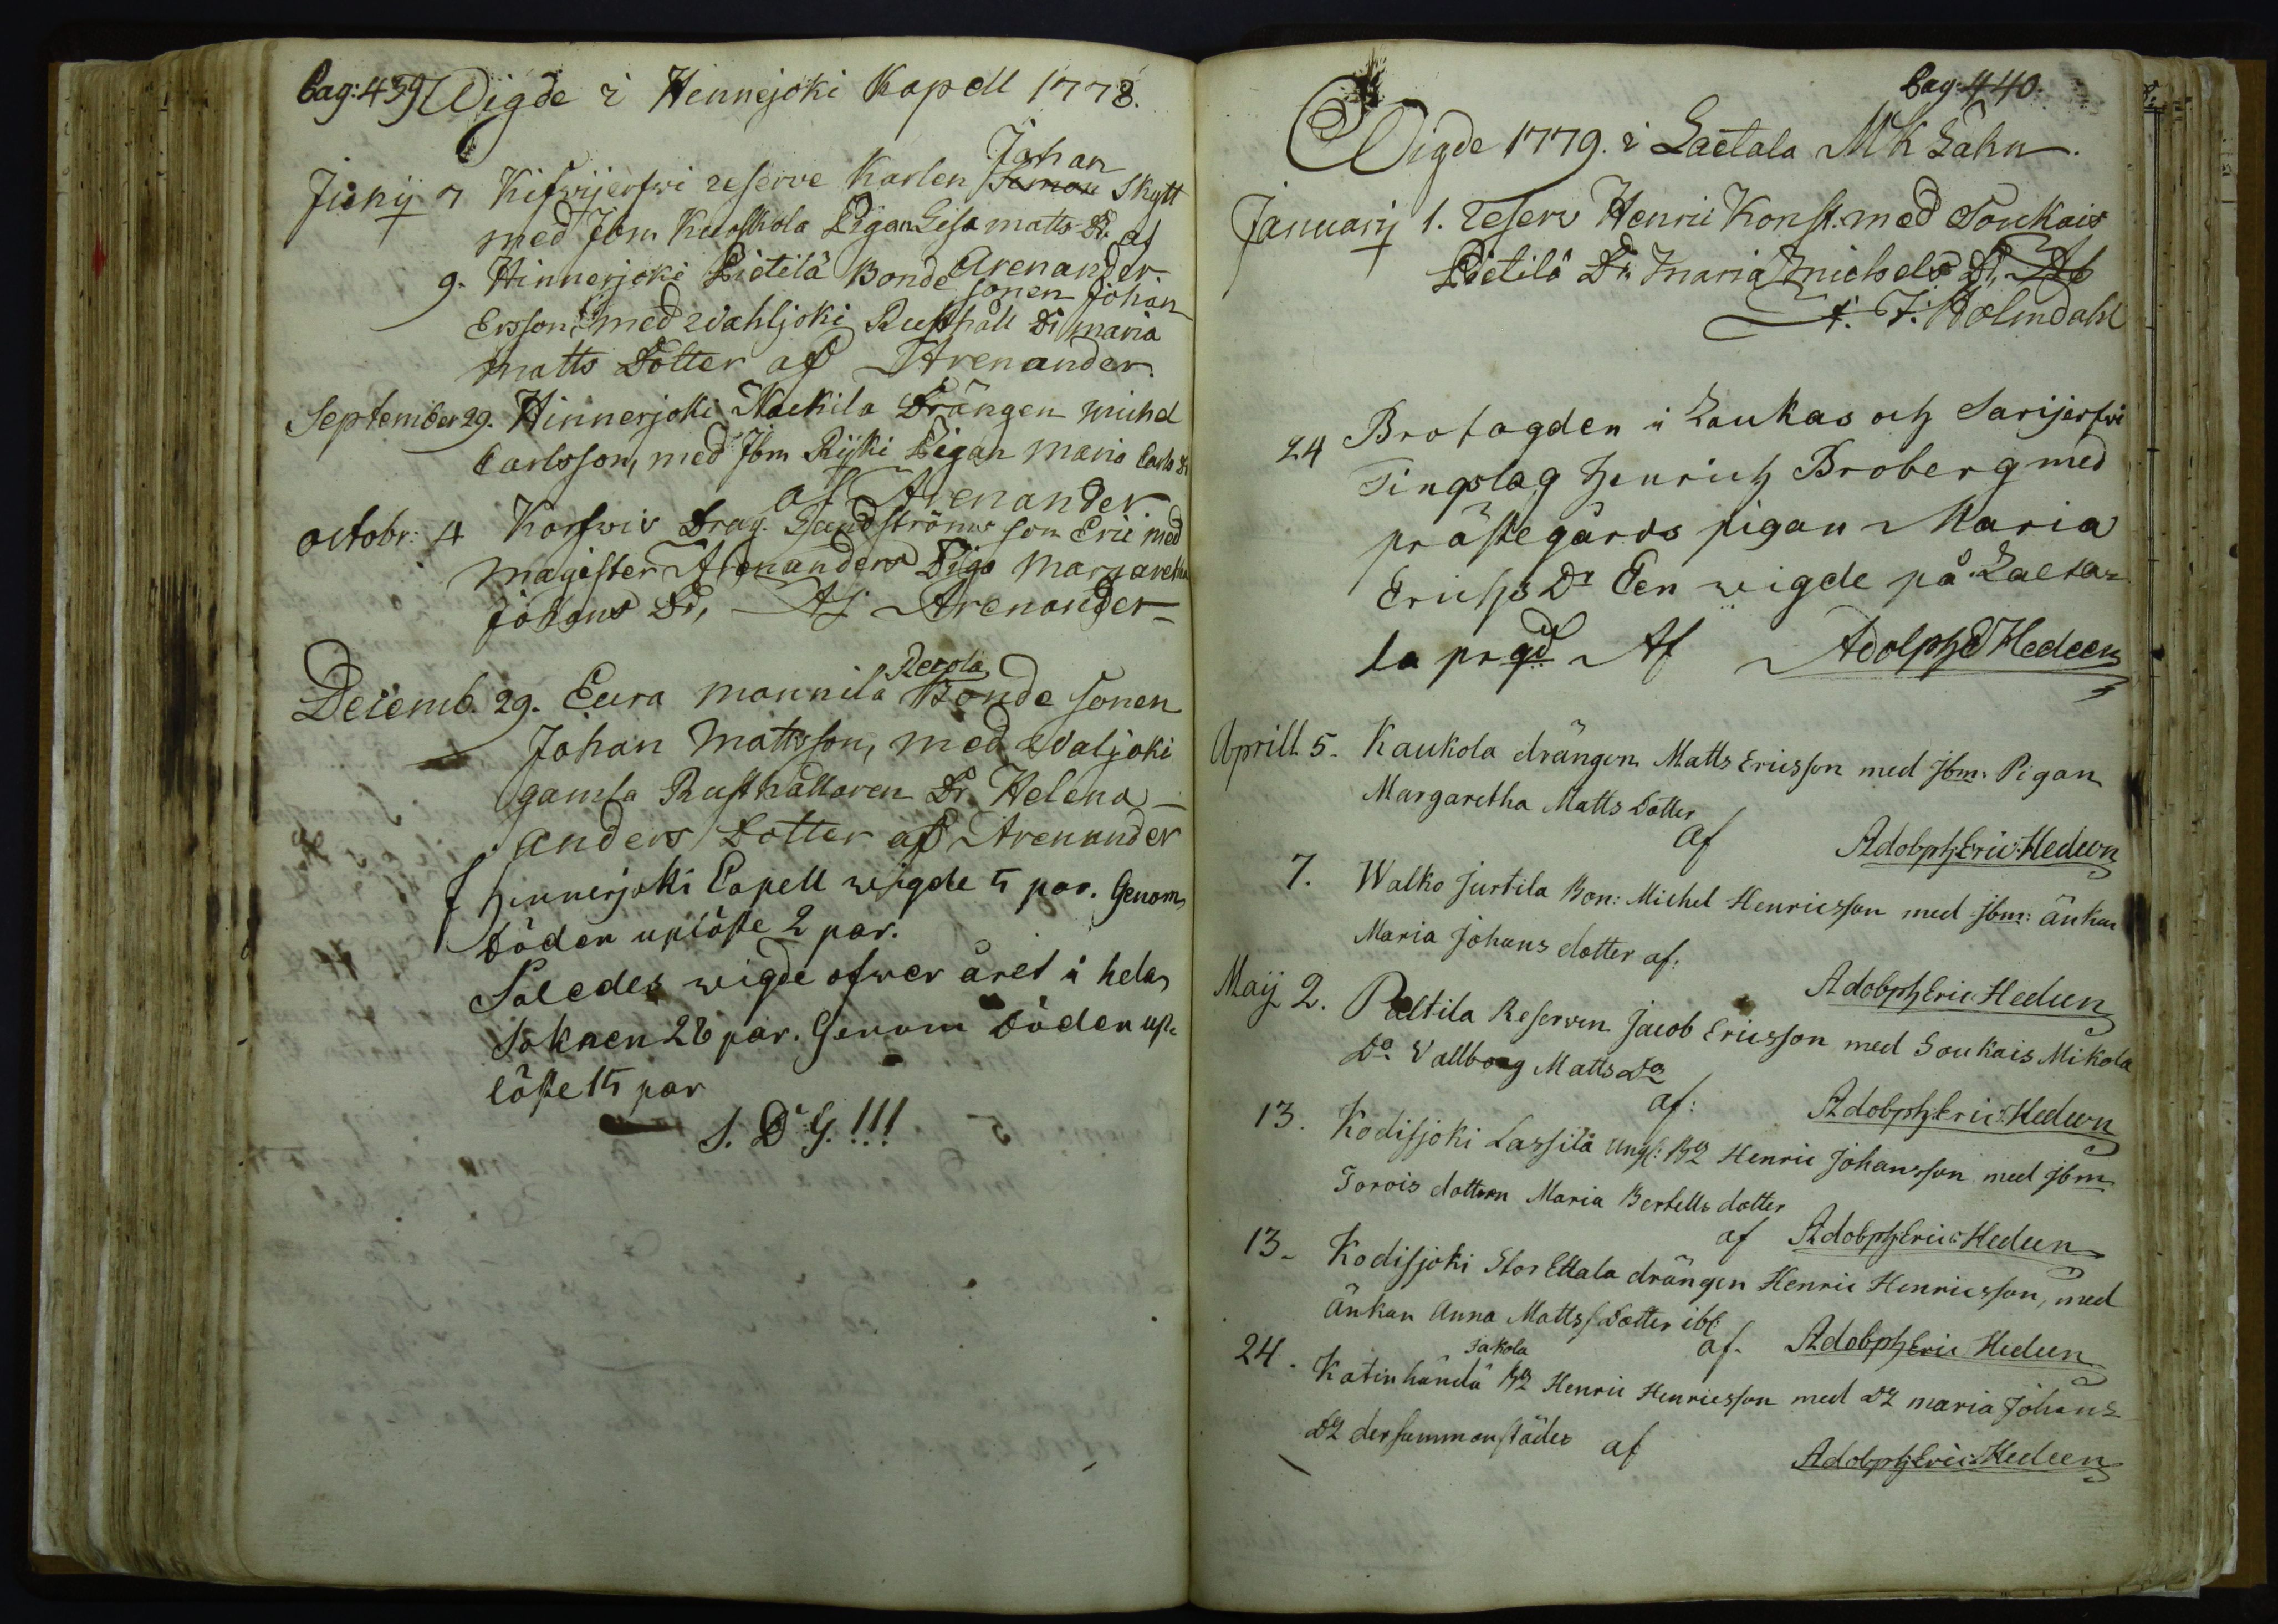 Pag: 439 Wigde i Hennejoki Kapell 1778.
Johan
Junij 7 Kifwijerfwi reserve Karlen Simon Skytt
med Jbm Kuoskola Pigan Lisa matts Dr. af
Arenander
9. Hinnerjoki Pietilä Bonde sonen Johan
Ersson, med Wahljoki Rusthåll Dr maria
matts Dotter af Arenander.
September 29. Hinnerjoki Naukila Drängen Michel
Carlsson, med Jbm Rijki Pigan Maria Carls Dr
af Arenander
octobr: 4 Korfwis Drag. Sandströms son Eric med
magister Arenanders Piga Margaretha
Johans Dr, Af Arenander
Recola
Decemb. 29. Eura mannila Bonde sonen
Johan Mattsson, med Waljoki
gamla Rusthållaren Dr. Helena
anders Dotter af Arenander
I hinnerjoki Capell wigde 5 par. Genom
döden uplöste 2 par.
Således wigde ofwer året i hela
Soknen 28 par. Genom döden up=
löste 15 par
S. D. G. !!!
Pag: 440.
Wigde 1779. i Laetala MK Sahn.
Januarij 1. reserv Henric Konst. med Soukais
Pietilä Dr. Maria Michels Dr, Af
A. F. Holmdahl
24 Brofogden i Laukas och Sarijerfwi
Tingslag Henrich Broberg med
prästegårds pigan Maria
Erichs Dr Een wigde på Laeta=
la prgd Af Adolph E Hedeen
Aprill 5. Kaukola drängen Matts Ericsson med Jbm: Pigan
Margaretha Matts Dotter
af Adolph Eric Hedeen
7. Walko Jurtila Bon: Michel Henricsson med jbm: änkan
Maria Johans dotter af:
Adolph Eric Hedeen
Maij 2. Paltila Reserven Jacob Ericsson med Soukais Mikola
Dr Vallborg Matts Dr
af: Adolph Eric Hedeen
13. Kodisjoki Lassila Ungk: Br Henric Johansson med jbm
Torois dottern Maria Bertells dotter
af Adolph Eric Hedeen
13. Kodisjoki Stor Ettala drängen Henric Henricsson, med
änkan Anna Mattss Dotter ibf:
af. Adolph Eric Hedeen
Jakola
24. Katinhändä Br Henric Henricsson med Dr maria Johans
Dr dersammanstädes af
Adolph Eric Hedeen